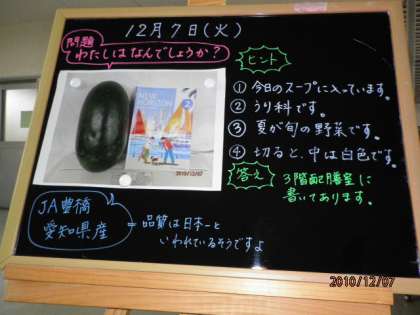 12月7日(火)
問題
わたしはなんでしょうか?
ヒント
① 今日のスープに入っています。
② うり科です。
③ 夏が旬の野菜です。
④ 切ると、中は白色です。
答え
3階配膳室に
書いてあります。
NEW
HORIZON
2
2010/12/07
JA豊橋
愛知県産
= 品質は日本一と
いわれているそうですよ
2010/12/07